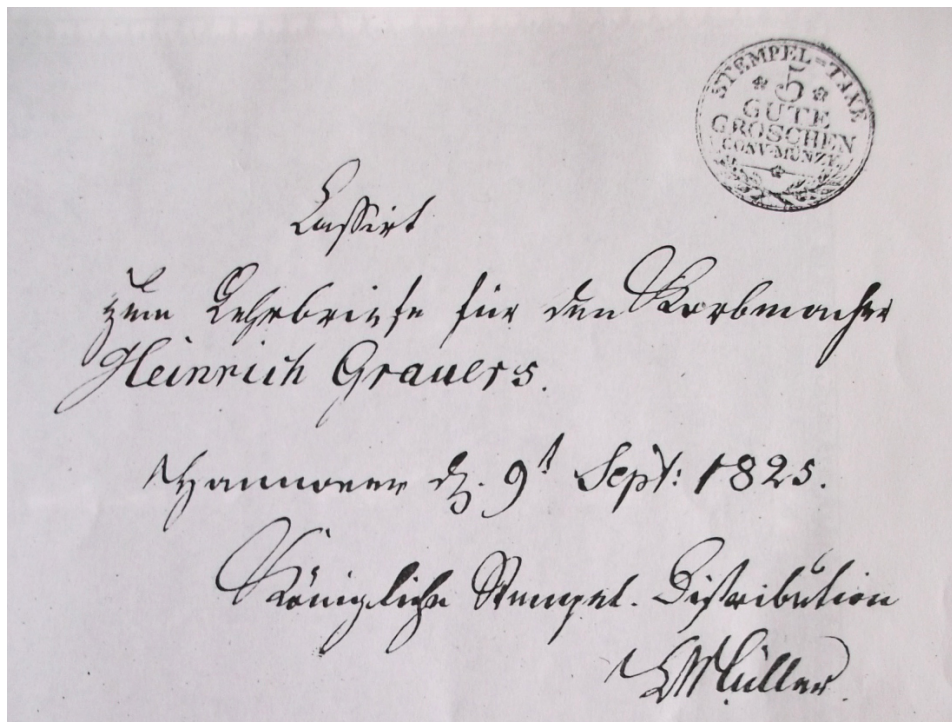 STEMPEL=TAXE
5
GUTE
GROSCHEN
CONV-MÜNZE
Cassirt
zum Lehrbriefe für den Korbmacher
Heinrich Grauers.
Hannover d. 9t Sept: 1825.
Königliche Stempel-Distribution
Müller